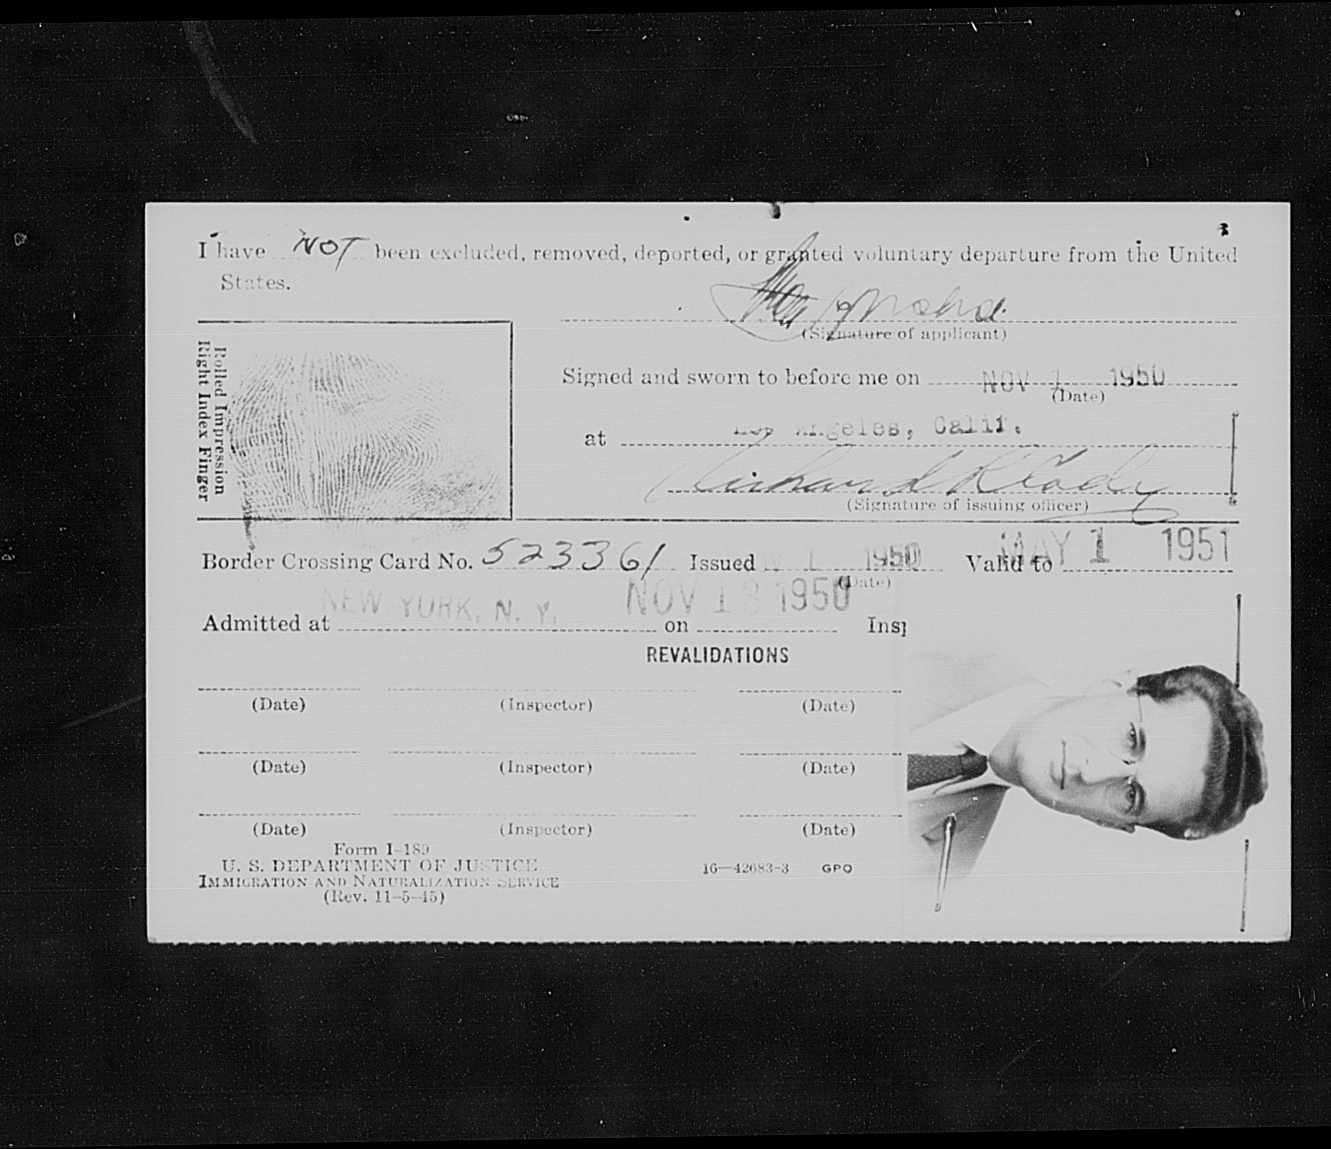 I have NOT been excluded, removed, deported, or granted voluntary departure from the United
States.
(Signature of applicant)
Rolled Impression
Right Index Finger
Signed and sworn to before me on NOV 1 1950
(Date)
at Los Angeles, Calif.
(Signature of issuing officer)
Border Crossing Card No. 523361 Issued 1 1950 Valid to MAY 1 1951
(Date)
Admitted at NEW YORK, N. Y. on NOV 18 1950
REVALIDATIONS
(Date) (Inspector) (Date)
(Date) (Inspector) (Date)
(Date) (Inspector) (Date)
Form I-189
U. S. DEPARTMENT OF JUSTICE
IMMIGRATION AND NATURALIZATION SERVICE
(Rev. 11-5-45)
16—42683-3 GPO